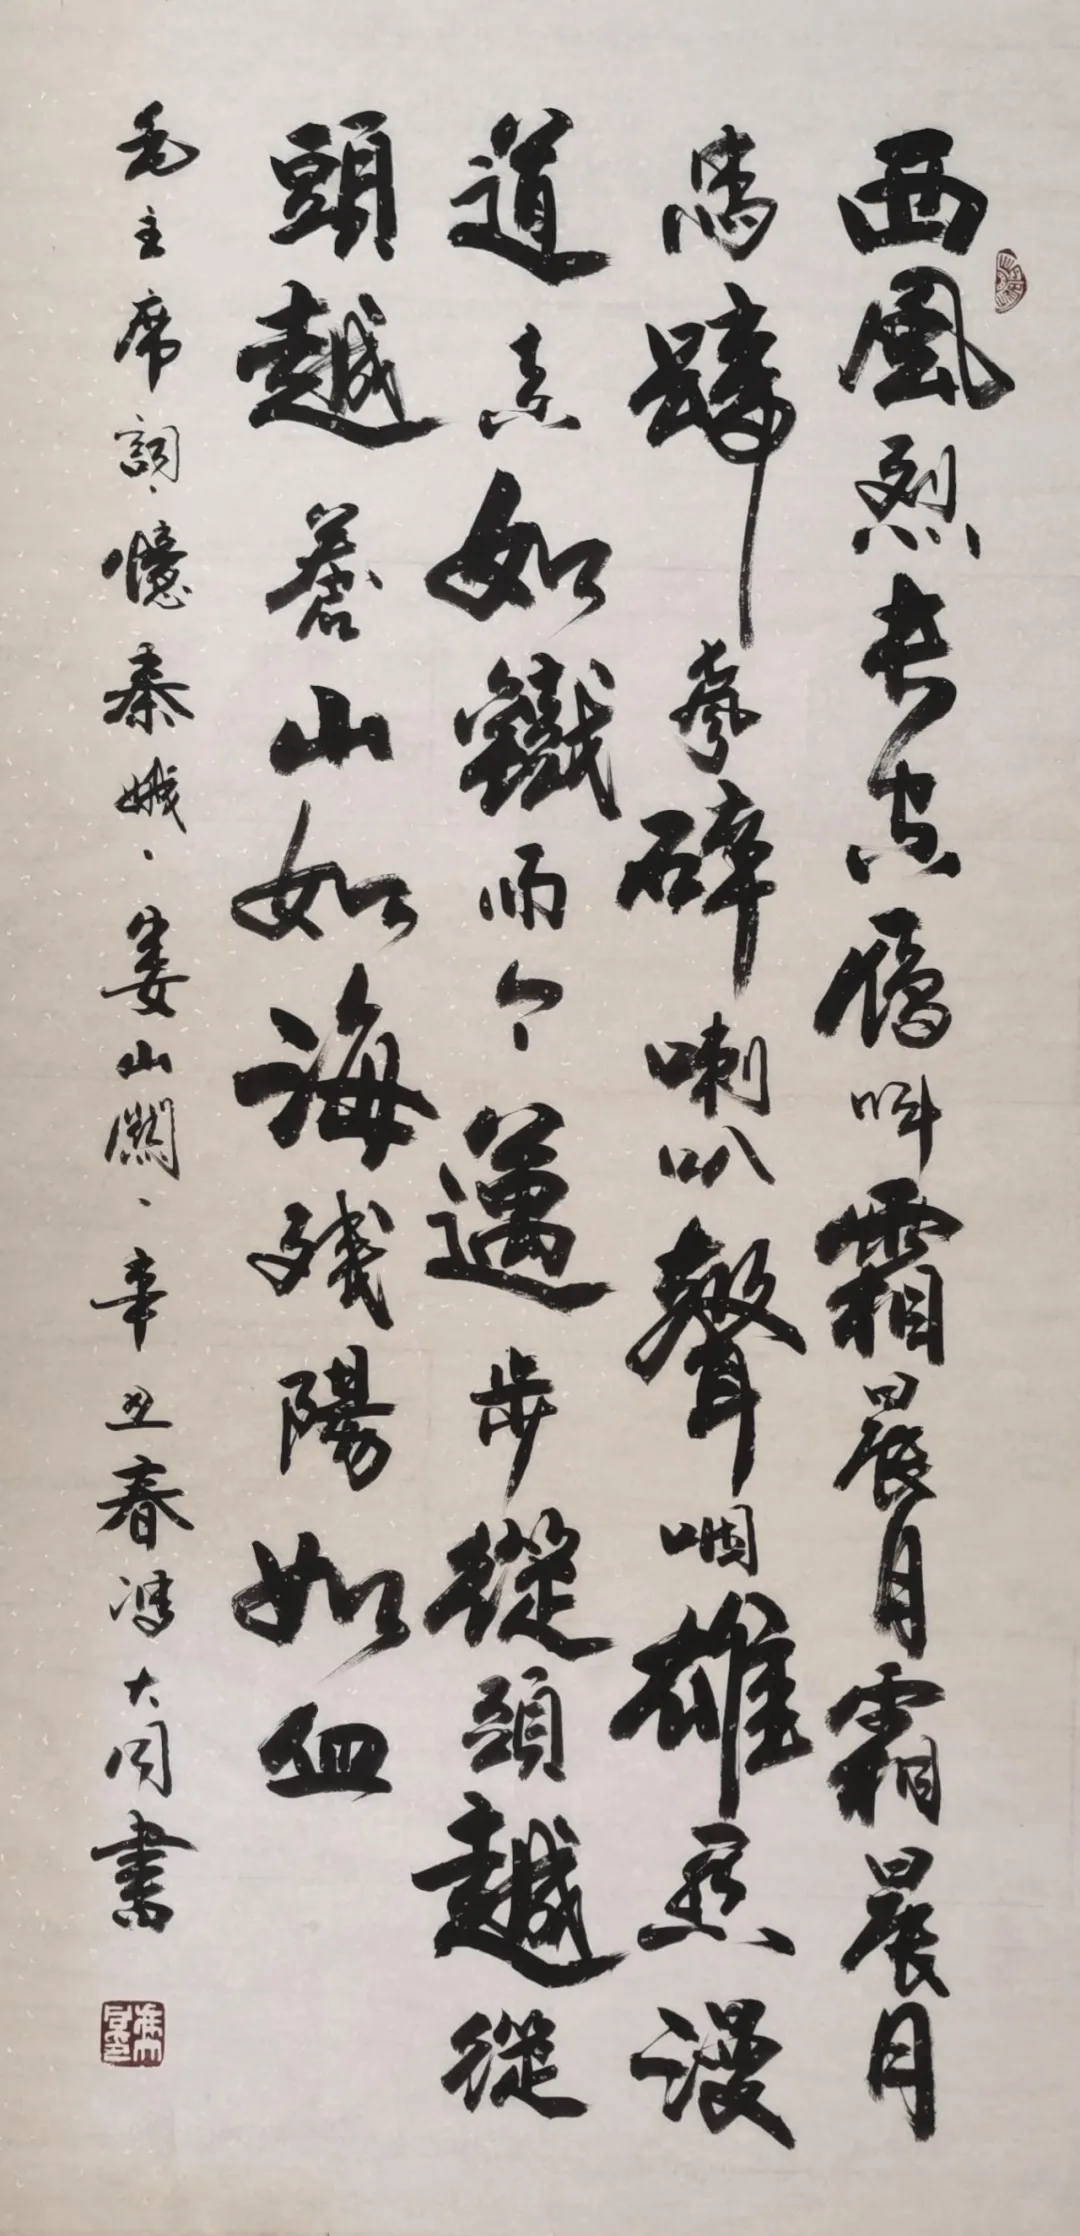 西風烈長空雁叫霜晨月霜晨月
馬蹄聲碎喇叭聲咽雄關漫
道真如鐵而今邁步從頭越從
頭越蒼山如海殘陽如血
毛主席詞、憶秦娥、婁山關、辛丑春馮大同書